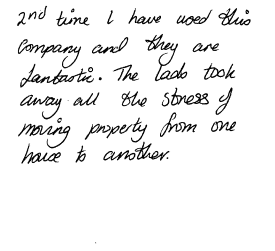 2nd time I have used this
company and they are
fantastic. The lads took
away all the stress of
moving property from one
house to another.